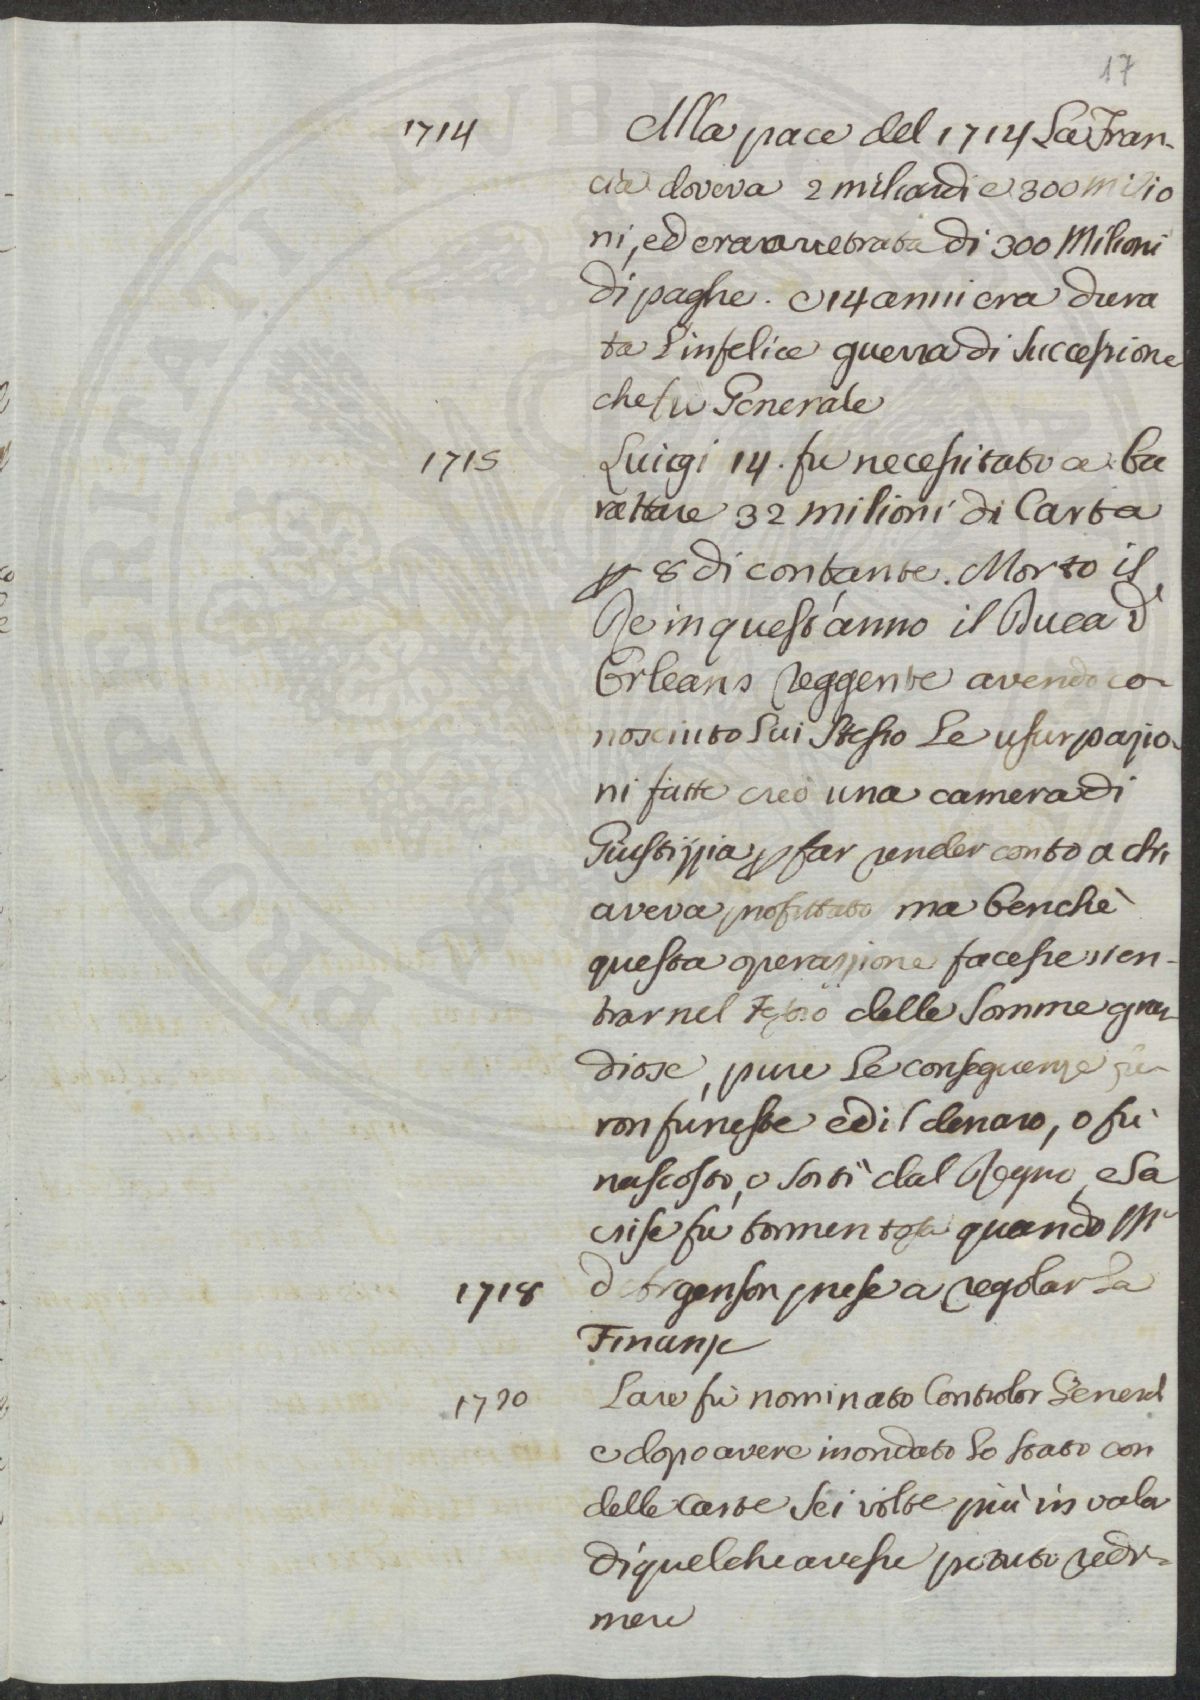 17
1714 Alla pace del 1714 La Fran-
cia doveva 2 miliardi e 300 milio
ni, ed era arretrata di 300 Milioni
di paghe. e 14 anni era dura
ta L'infelice guerra di Successione
che fù Generale
1715 Luigi 14. fu necessitato a ba
rattare 32 milioni di Carta
p 8 di contante. Morto il
Re in quest'anno il Duca d'
Orleans reggente avendo co-
nosciuto Lui Stesso Le usurpazio-
ni fatte creò una camera di
Giustizzia p far render conto a chi
aveva profittato ma benchè
questa operazzione facesse rien-
trar nel Tesoro delle Somme gran-
diose, pure Le conseguenze fu-
ron funeste ed il denaro, o fù
nascosto, o Sortì dal Regno, e La
crise fù tormentosa quando Mr
1718 d'Argenson prese a regolar La
Finanze
1720 Law fù nominato Controlor General
e dopo avere inondato Lo Stato con
delle Carte Sei volte più in valor
di quel che avesse potuto redi-
mere